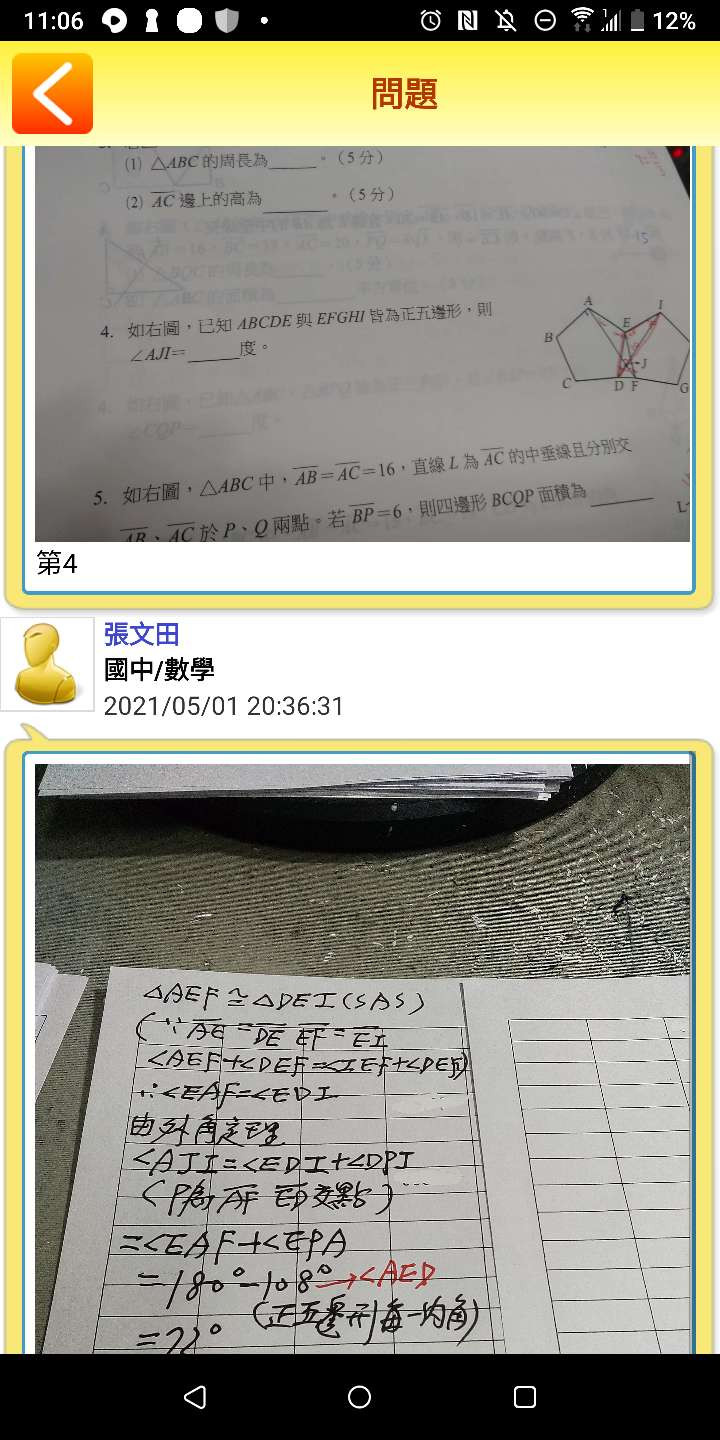 11:06
12%
問題
(1) △ABC 的周長為＿＿＿。（5 分）
(2) AC 邊上的高為＿＿＿。（5 分）
15
4. 如右圖，已知 ABCDE 與 EFGHI 皆為正五邊形，則
∠AJI=＿＿＿度。
A
I
B
E
J
C
D F
G
5. 如右圖，△ABC 中，AB=AC=16，直線 L 為 AC 的中垂線且分別交
AB、AC 於 P、Q 兩點。若 BP=6，則四邊形 BCQP 面積為＿＿＿
L
第4
張文田
國中/數學
2021/05/01 20:36:31
△AEF≅△DEI(SAS)
(∵AE=DE EF=EI
∠AEF+∠DEF=∠IEF+∠DEF)
∴∠EAF=∠EDI
由外角定理
∠AJI=∠EDI+∠DPJ
(P為AF ED交點)
=∠EAF+∠EPA
=180°-108°→∠AED
(正五邊形每一內角)
=72°